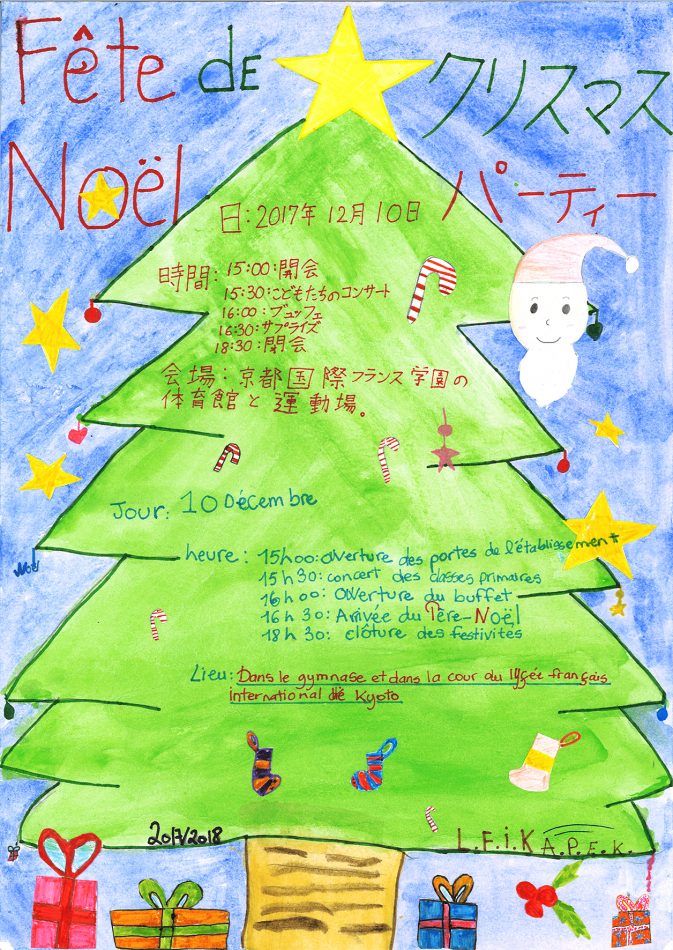 Fête de
クリスマス
Noël
パーティー
日:2017年 12月 10日
時間: 15:00:開会
15:30:こどもたちのコンサート
16:00:ブュッフェ
16:30:サプライズ
18:30:閉会
会場: 京都国際フランス学園の
体育館と運動場。
Jour: 10 Décembre
heure: 15h00: Ouverture des portes de l'établissement
15h30: concert des classes primaires
16h00: Ouverture du buffet
16h30: Arrivée du Père-Noël
18h30: clôture des festivités
Noël
Lieu: Dans le gymnase et dans la cour du lycée français
international de Kyoto
2017/2018
L.F.i.K A.P.E.K.